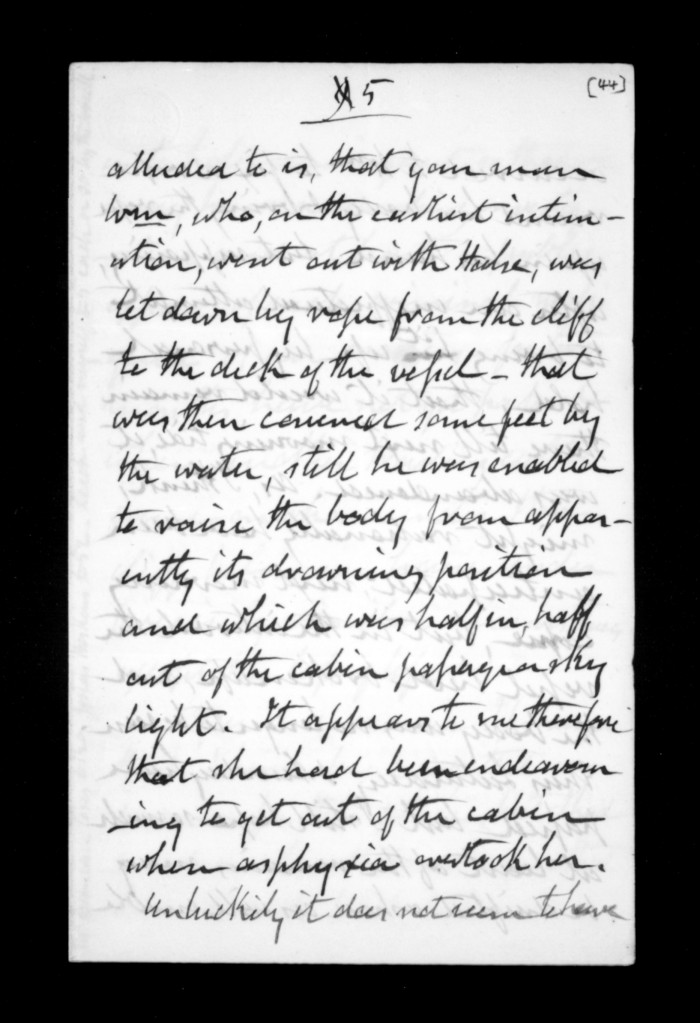 5 [44]
alluded to is, that your man
Wm, who, on the earliest intim-
ation, went out with Halse, was
let down by rope from the cliff
to the deck of the vessel - that
was then covered some feet by
the water, still he was enabled
to raise the body from appar-
ently its drowning position
and which was half in, half
out of the cabin passage or sky
light. It appears to me therefore
that she had been endeavour
-ing to get out of the cabin
when asphyxia overtook her.
Unluckily it does not seem to have